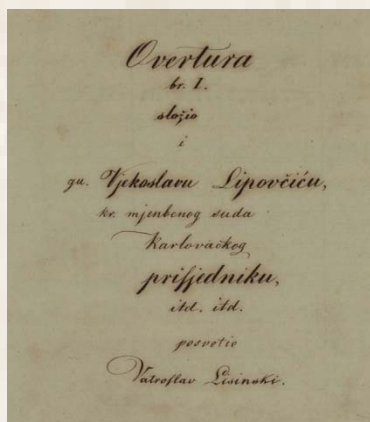 Overtura
br. I.
složio
i
gu. Vjekoslavu Lipovčiću,
kr. mjenbenog suda
Karlovačkog
prisjedniku,
itd. itd.
posvetio
Vatroslav Lisinski.